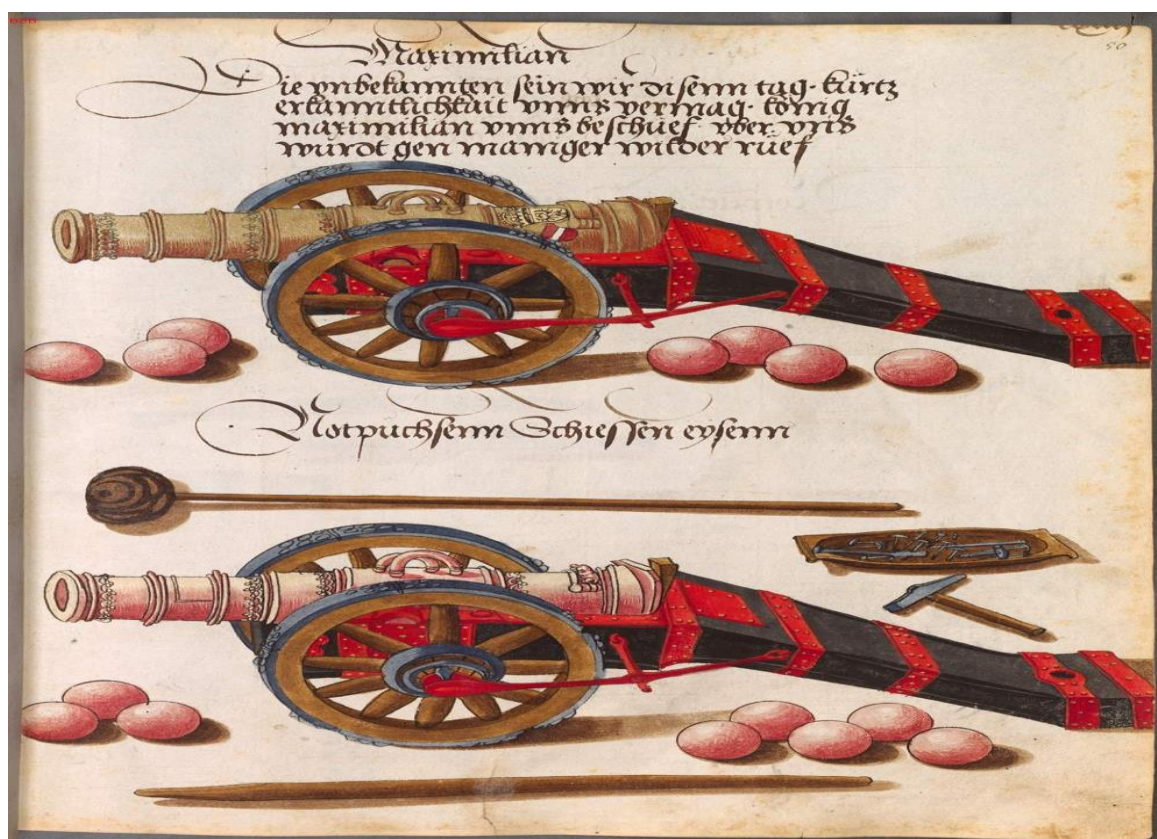 Maximilian
Die vnbekannten sein wir disenn tag · kürtz
erkanntlichkait vnns vermag · könig
maximilian vnns beschuef vber vnns
würdt gen maniger witder rüef
50
Notpuchsenn Schiessen eysenn